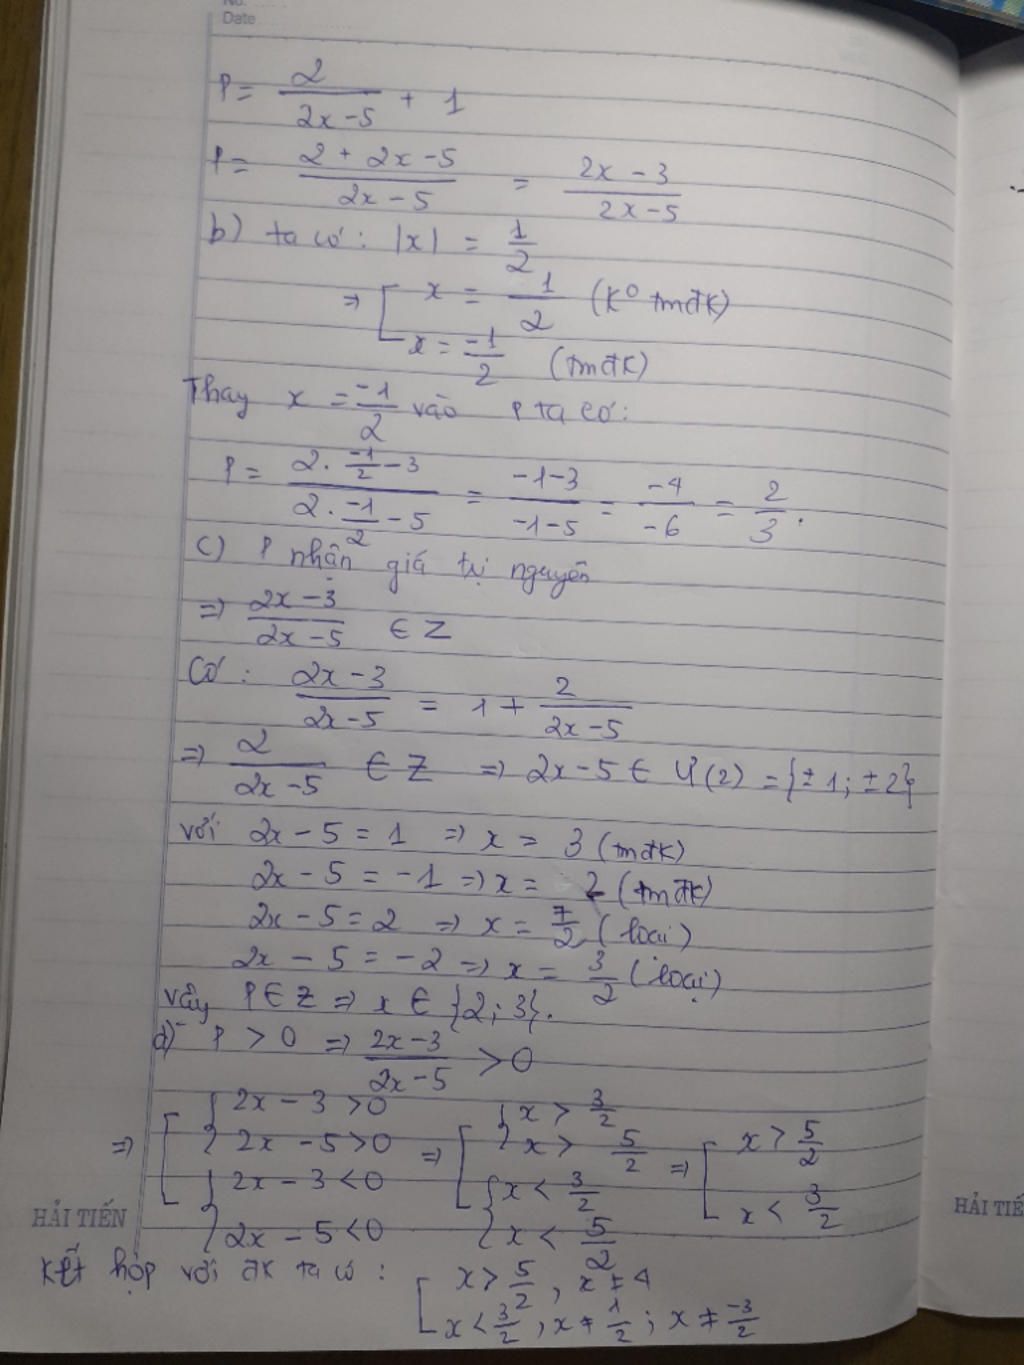 No.
Date
P = 2/(2x-5) + 1
P = (2 + 2x - 5)/(2x - 5) = (2x - 3)/(2x - 5)
b) ta có: |x| = 1/2
=> [ x = 1/2 (k° tmđk)
x = -1/2 (tmđk)
Thay x = -1/2 vào P ta có:
P = (2 . -1/2 - 3)/(2 . -1/2 - 5) = (-1-3)/(-1-5) = -4/-6 = 2/3.
c) P nhận giá trị nguyên
=> (2x - 3)/(2x - 5) ∈ Z
Có: (2x - 3)/(2x - 5) = 1 + 2/(2x - 5)
=> 2/(2x - 5) ∈ Z => 2x - 5 ∈ Ư(2) = {±1; ±2}
với 2x - 5 = 1 => x = 3 (tmđk)
2x - 5 = -1 => x = 2 (tmđk)
2x - 5 = 2 => x = 7/2 (loại)
2x - 5 = -2 => x = 3/2 (loại)
vậy P ∈ Z => x ∈ {2; 3}.
d) P > 0 => (2x - 3)/(2x - 5) > 0
=> [ { 2x - 3 > 0 ; 2x - 5 > 0 => [ { x > 3/2 ; x > 5/2 => [ x > 5/2
{ 2x - 3 < 0 ; 2x - 5 < 0 { x < 3/2 ; x < 5/2 x < 3/2
HẢI TIẾN HẢI TIẾ
Kết hợp với ĐK ta có: [ x > 5/2, x ≠ 4
x < 3/2, x ≠ 1/2; x ≠ -3/2